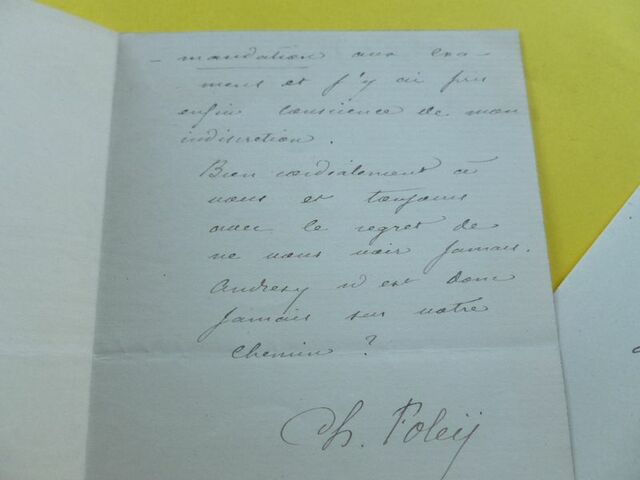 - mandation aux exa-
mens et j'y ai pris
enfin conscience de mon
indiscretion.
Bien cordialement à
vous et toujours
avec le regret de
ne vous voir jamais.
Andresy n'est donc
jamais sur votre
chemin ?
Ch. Foleÿ